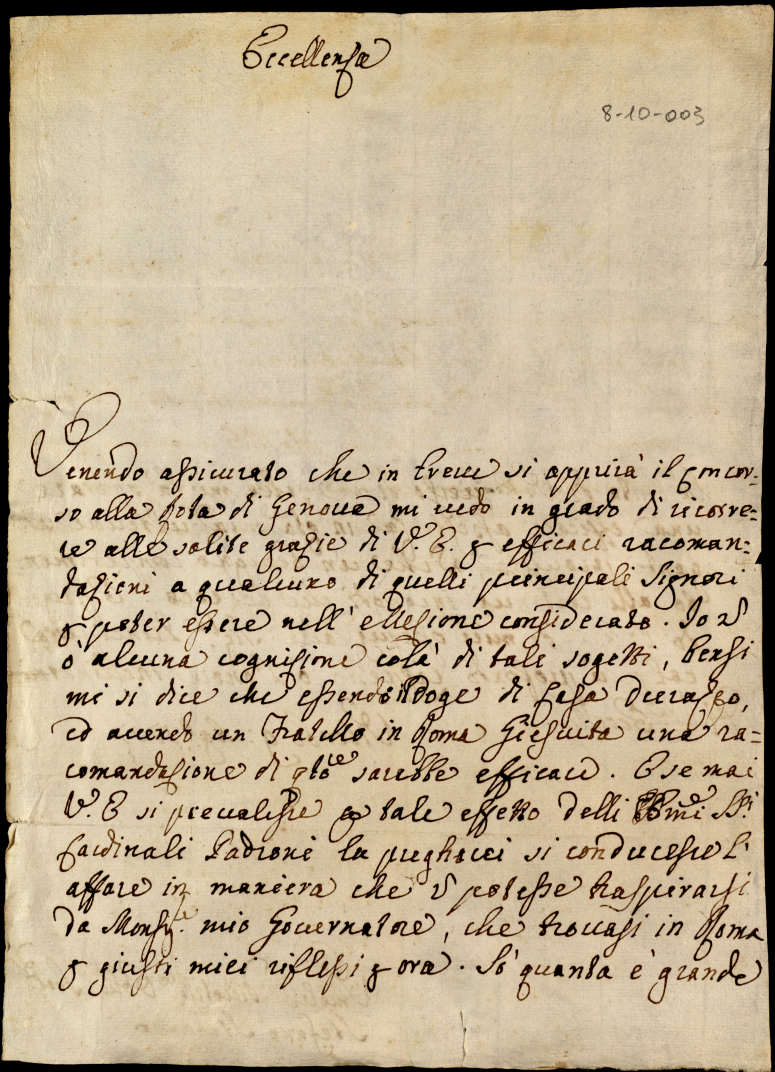 Eccellenza
8-10-003
Venendo assicurato che in breve si apprirà il Concor=
so alla Rota di Genova mi vedo in grado di ricorre=
re alle solite grazie di V. E. per efficaci racoman=
dazioni a qualcuno di quelli principali Signori
per poter essere nell' ellezione considerato. Io nō
ò alcuna cognizione colà di tali sogetti, bensi
mi si dice che essendo il Doge di Casa Durazzo,
ed avendo un Fratello in Roma Giesuita una ra=
comandazione di qto sarebbe efficace. E se mai
V. E si prevalesse per tale effetto delli Emmi SSri
Cardinali Padroni la pregherei si conducesse l'
affare in maniera che nō potesse traspirarsi
da Monsre mio Governatore, che trovasi in Roma
per giusti miei riflessi per ora. Sò quanta è grande